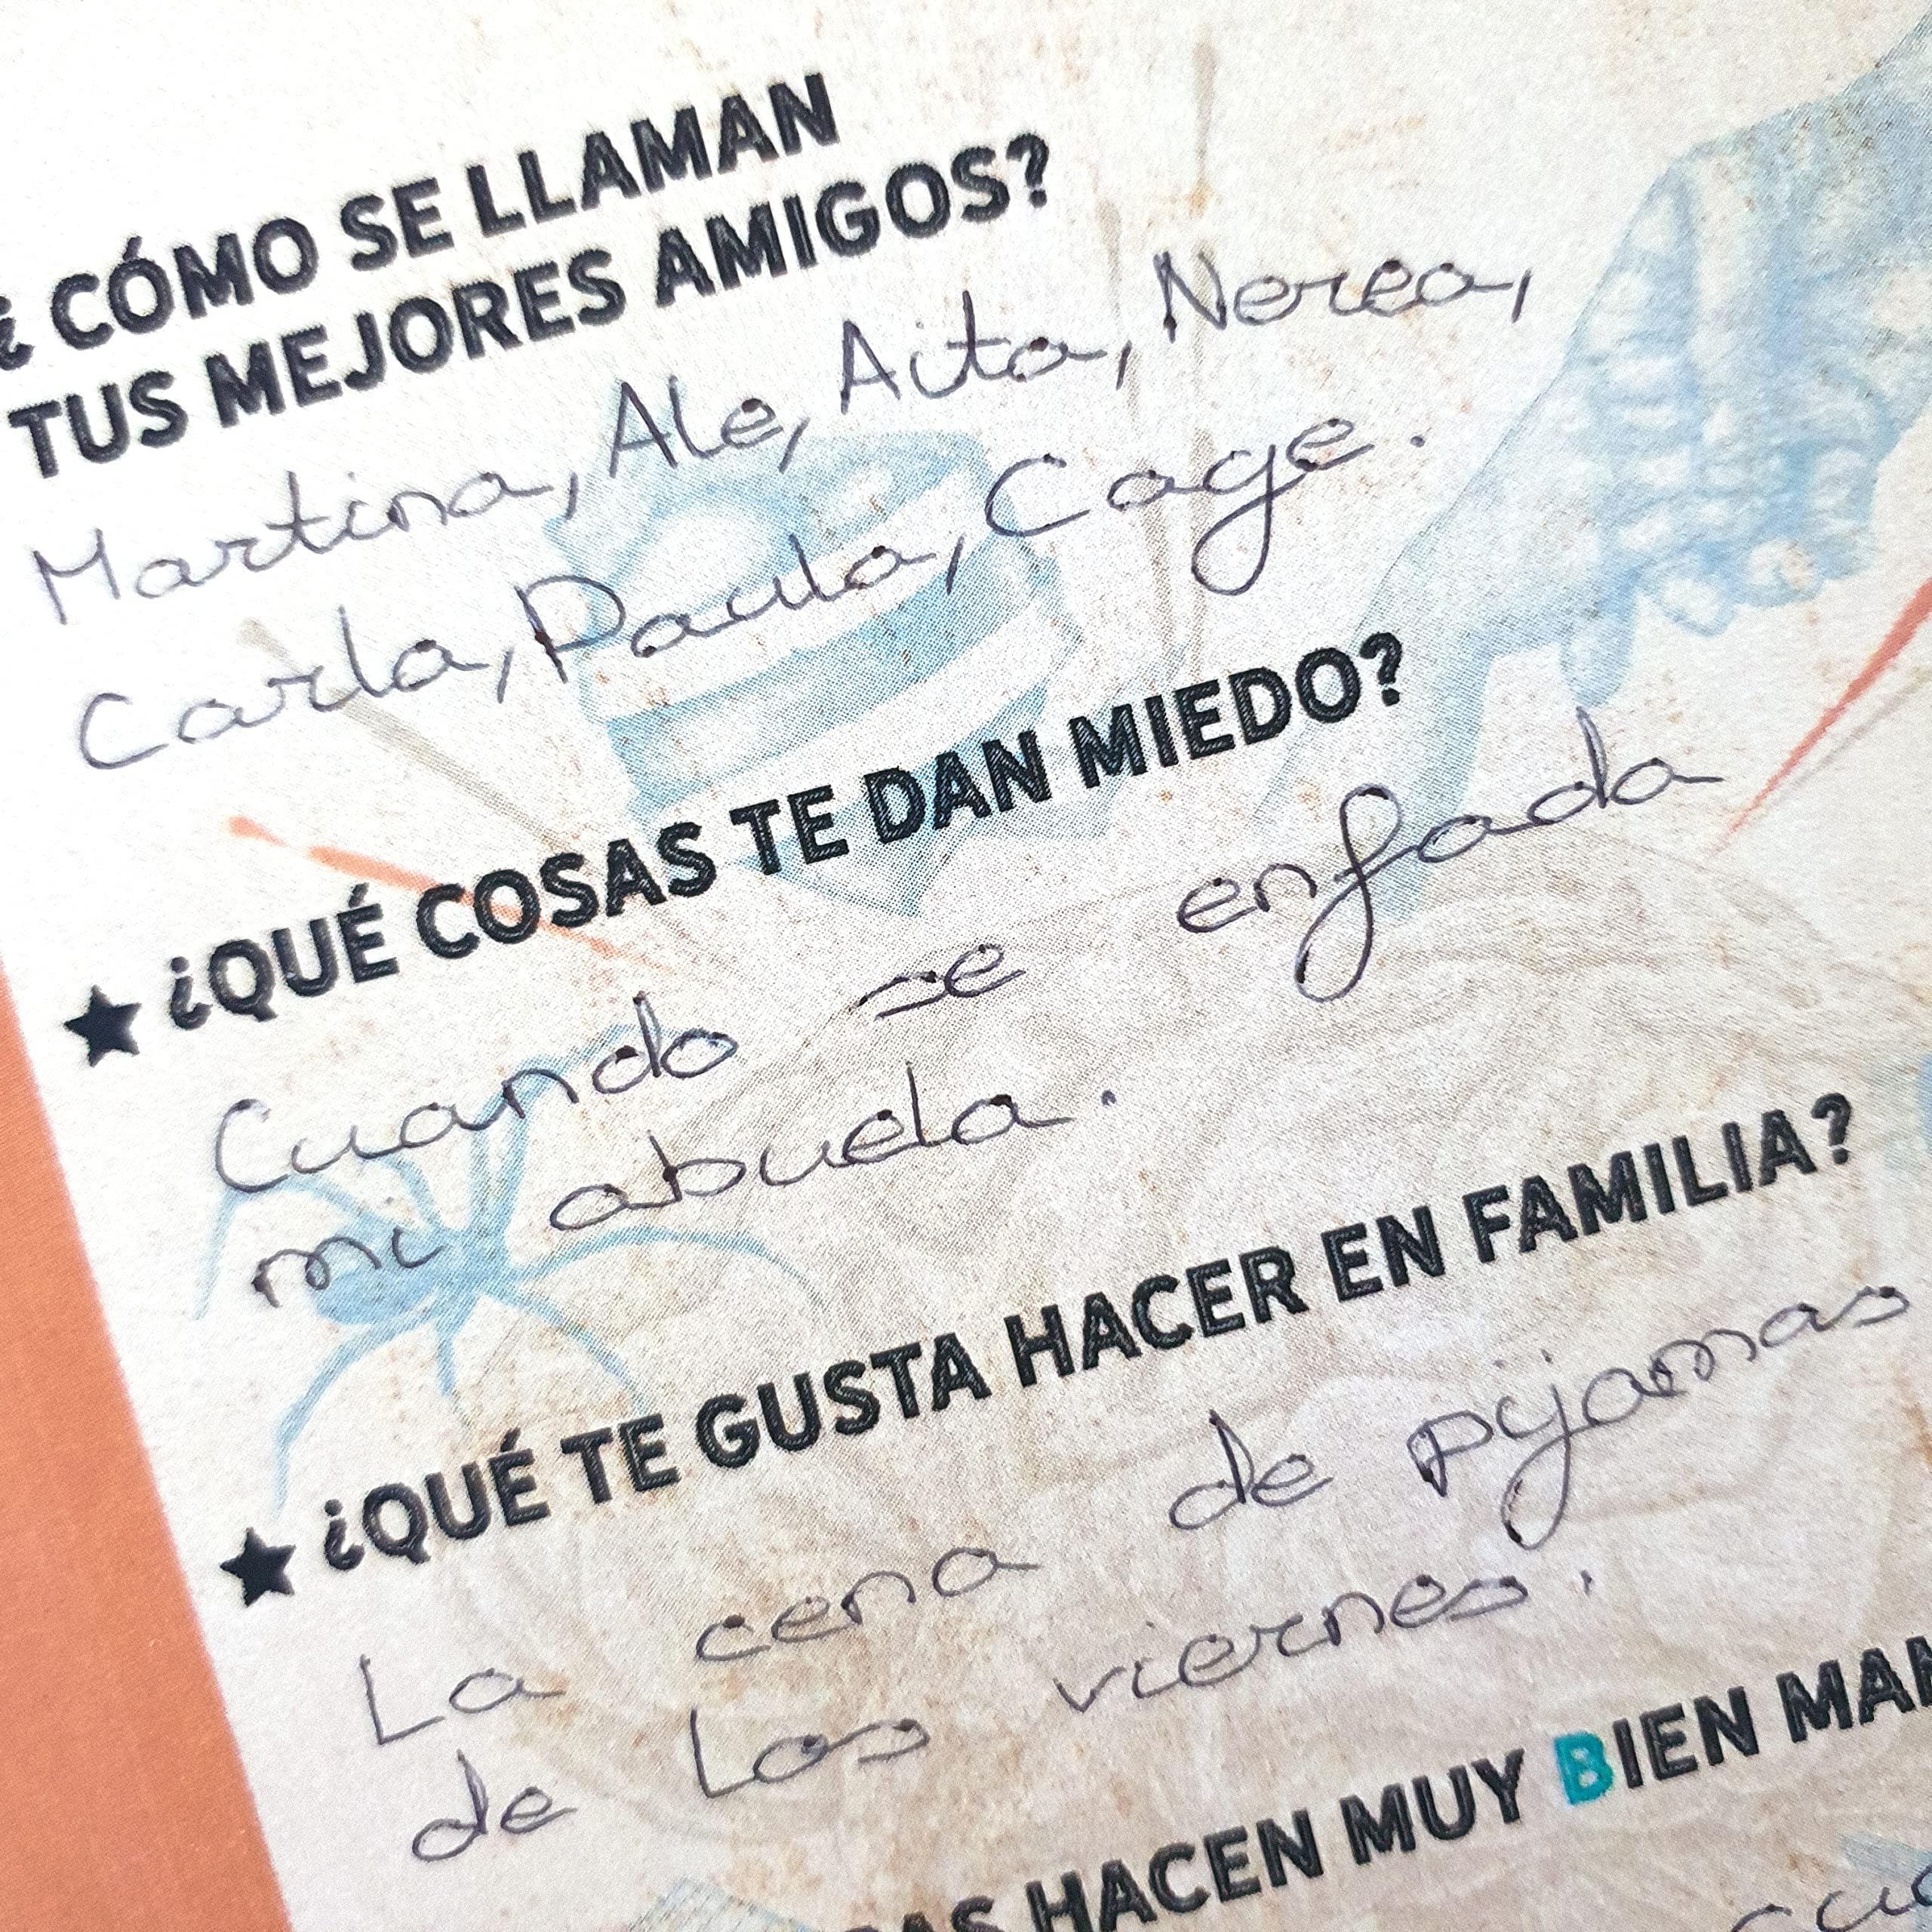 ¿CÓMO SE LLAMAN
TUS MEJORES AMIGOS?
Martina, Ale, Aita, Nerea,
Carla, Paula, Cage.
★ ¿QUÉ COSAS TE DAN MIEDO?
Cuando se enfada
mi abuela.
★ ¿QUÉ TE GUSTA HACER EN FAMILIA?
La cena de pijamas
de los viernes.
HACEN MUY BIEN